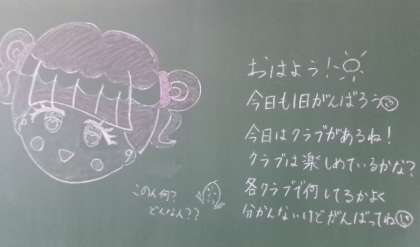 おはよう!
今日も1日がんばろう
今日はクラブがあるね!
クラブは楽しめているかな?
各クラブで何してるかよく
分かんないけどがんばってね
この人何?
どんなん??